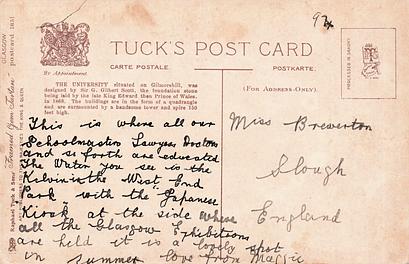 93
TUCK'S POST CARD
CARTE POSTALE.
POSTKARTE.
By Appointment.
(FOR ADDRESS ONLY.)
THE UNIVERSITY situated on Gilmorehill, was
designed by Sir G. Gilbert Scott, the foundation stone
being laid by the late King Edward then Prince of Wales,
in 1868. The buildings are in the form of a quadrangle
and are surmounted by a handsome tower and spire 150
feet high.
GLASGOW
Raphael Tuck & Sons'
This is where all our
Schoolmasters Lawyers Doctors
and so forth are educated
The Water you see is the
Kelvin in the West End
Park with the Japanese
Kiosk at the side where
all the Glasgow Exhibitions
are held it is a lovely spot
in summer love from Maggie
Miss Brewerton
Slough
England